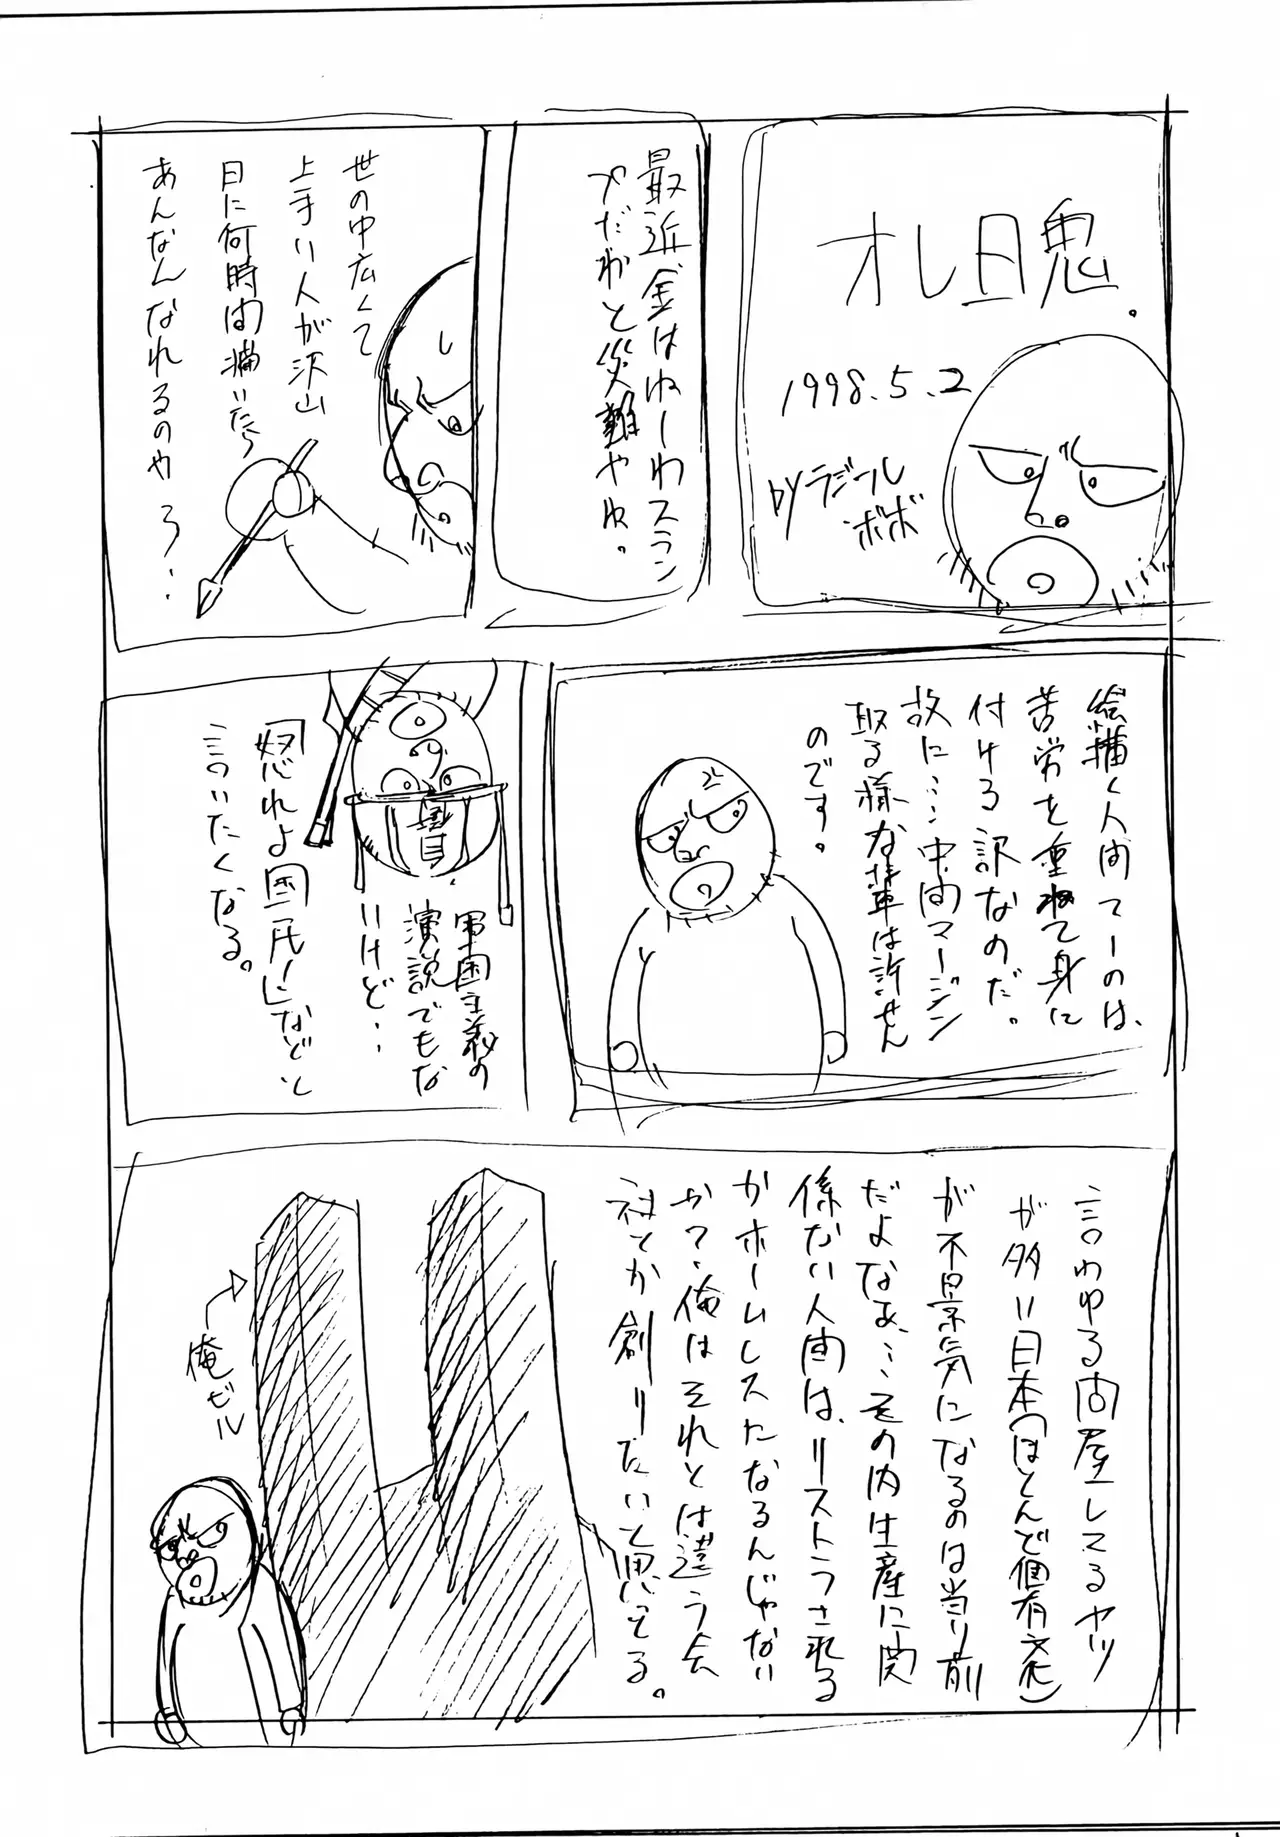 オレ日鬼。
1998.5.2
byラジール
ボボ
最近、金はねーわスラン
プだわと災難やね。
世の中広くて
上手い人が沢山
日に何時間描いたら
あんなんなれるのやろ・・
絵描く人間てーのは、
苦労を重ねて身に
付ける訳なのだ。
故に・・・中間マージン
取る様な輩は許せん
のです。
軍国主義の
演説でもな
いけど・・
「怒れよ国民!」などと
言いたくなる。
言わゆる問屋してるヤツ
が多い日本(ほとんど固有文化)
が不景気になるのは当り前
だよなぁ・・・その内生産に関
係ない人間は、リストラされる
かホームレスになるんじゃない
か?俺はそれとは違う会
社とか創りたいと思ってる。
俺ビル